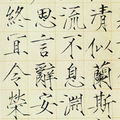 清似蘭斯
流不息淵
思言辭安
終宜令榮